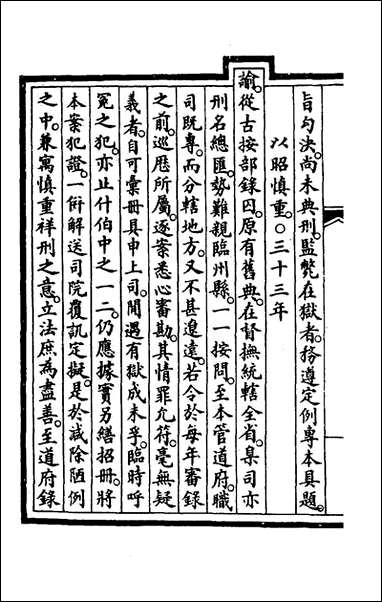 旨勾決。尚未典刑。監斃在獄者。務遵定例專本具題。
以昭慎重。○三十三年
諭。從古按部錄囚。原有舊典。在督撫統轄全省。臬司亦
刑名總匯。勢難親臨州縣。一一按問。至本管道府。職
司既專。而分轄地方。又不甚遼遠。若令於每年審錄
之前。巡歷所屬。逐案悉心審勘。其情罪允符。毫無疑
義者。自可彙冊具申上司。閒遇有獄成未孚。臨時呼
冤之犯。亦止什伯中之一二。仍應據實另繕招冊。將
本案犯證。一併解送司院覆訊定擬。是於減除陋例
之中。兼寓慎重祥刑之意。立法庶為盡善。至道府錄